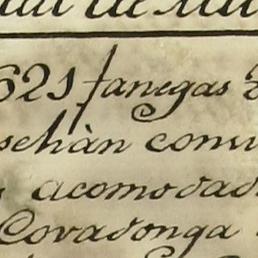 621 fanegas
sehàn conv
acomodad
Covadonga